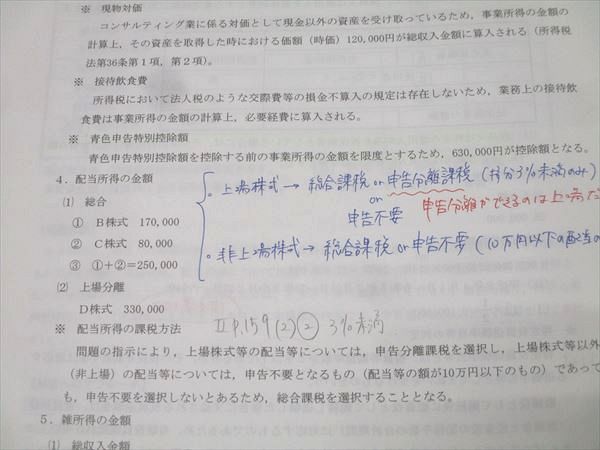 ※ 現物対価
コンサルティング業に係る対価として現金以外の資産を受け取っているため，事業所得の金額の
計算上，その資産を取得した時における価額（時価）120,000円が総収入金額に算入される（所得税
法第36条第1項，第2項）。
※ 接待飲食費
所得税において法人税のような交際費等の損金不算入の規定は存在しないため，業務上の接待飲
食費は事業所得の金額の計算上，必要経費に算入される。
※ 青色申告特別控除額
青色申告特別控除額を控除する前の事業所得の金額を限度とするため，630,000円が控除額となる。
4．配当所得の金額
。上場株式 → 総合課税 or 申告分離課税 (持分3%未満のみ)
or
申告不要
申告分離ができるのは上場だ
。非上場株式 → 総合課税 or 申告不要 (10万円以下の配当の
⑴ 総合
① B株式 170,000
② C株式 80,000
③ ①＋②＝250,000
⑵ 上場分離
D株式 330,000
Ⅱ P.159 (2) ② 3%未満
※ 配当所得の課税方法
問題の指示により，上場株式等の配当等については，申告分離課税を選択し，上場株式等以外
（非上場）の配当等については，申告不要となるもの（配当等の額が10万円以下のもの）であって
も，申告不要を選択しないとあるため，総合課税を選択することとなる。
5．雑所得の金額
⑴ 総収入金額